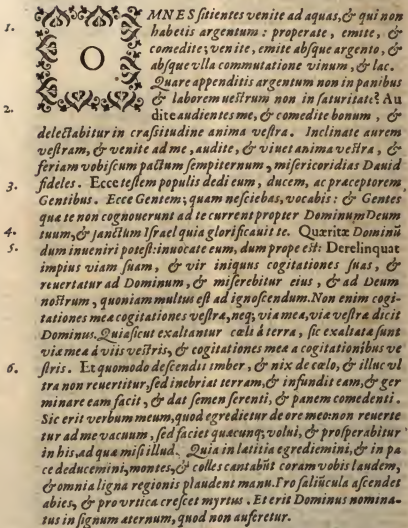 1. OMNES sitientes venite ad aquas, & qui non
habetis argentum : properate, emite, &
comedite; venite, emite absque argento, &
absque vlla commutatione vinum, & lac.
Quare appenditis argentum non in panibus
& laborem uestrum non in saturitate? Au
2. dite audientes me, & comedite bonum, &
delectabitur in crassitudine anima vestra. Inclinate aurem
vestram, & venite ad me, audite, & viuet anima vestra, &
feriam vobiscum pactum sempiternum, misericordias Dauid
fideles. Ecce testem populis dedi eum, ducem, ac præceptorem
3. Gentibus. Ecce Gentem; quam nesciebas, vocabis : & Gentes
qua te non cognouerunt ad te current propter Dominum Deum
4. tuum, & sanctum Israel quia glorificauit te. Quæritæ Dominũ
5. dum inueniri potest: inuocate eum, dum prope est: Derelinquat
impius viam suam, & vir iniquus cogitationes suas, &
reuertatur ad Dominum, & miserebitur eius, & ad Deum
nostrum, quoniam multus est ad ignoscendum. Non enim cogi-
tationes mea cogitationes vestra, neq; via mea, via vestra dicit
Dominus. Quia sicut exaltantur cœli à terra, sic exaltata sunt
via mea à viis vestris, & cogitationes mea a cogitationibus ve
6. stris. Et quomodo descendit imber, & nix de cœlo, & illuc vl
tra non reuertitur, sed inebriat terram, & infundit eam, & ger
minare eam facit, & dat semen serenti, & panem comedenti.
Sic erit verbum meum, quod egredietur de ore meo: non reuerte
tur ad me vacuum, sed faciet quacunq; volui, & prosperabitur
in his, ad qua misi illud. Quia in latitia egrediemini, & in pa
ce deducemini, montes, & colles cantabũt coram vobis laudem,
& omnia ligna regionis plaudent manu. Pro saliũcula ascendet
abies, & pro vrtica crescet myrtus. Et erit Dominus nomina-
tus in signum æternum, quod non auferetur.